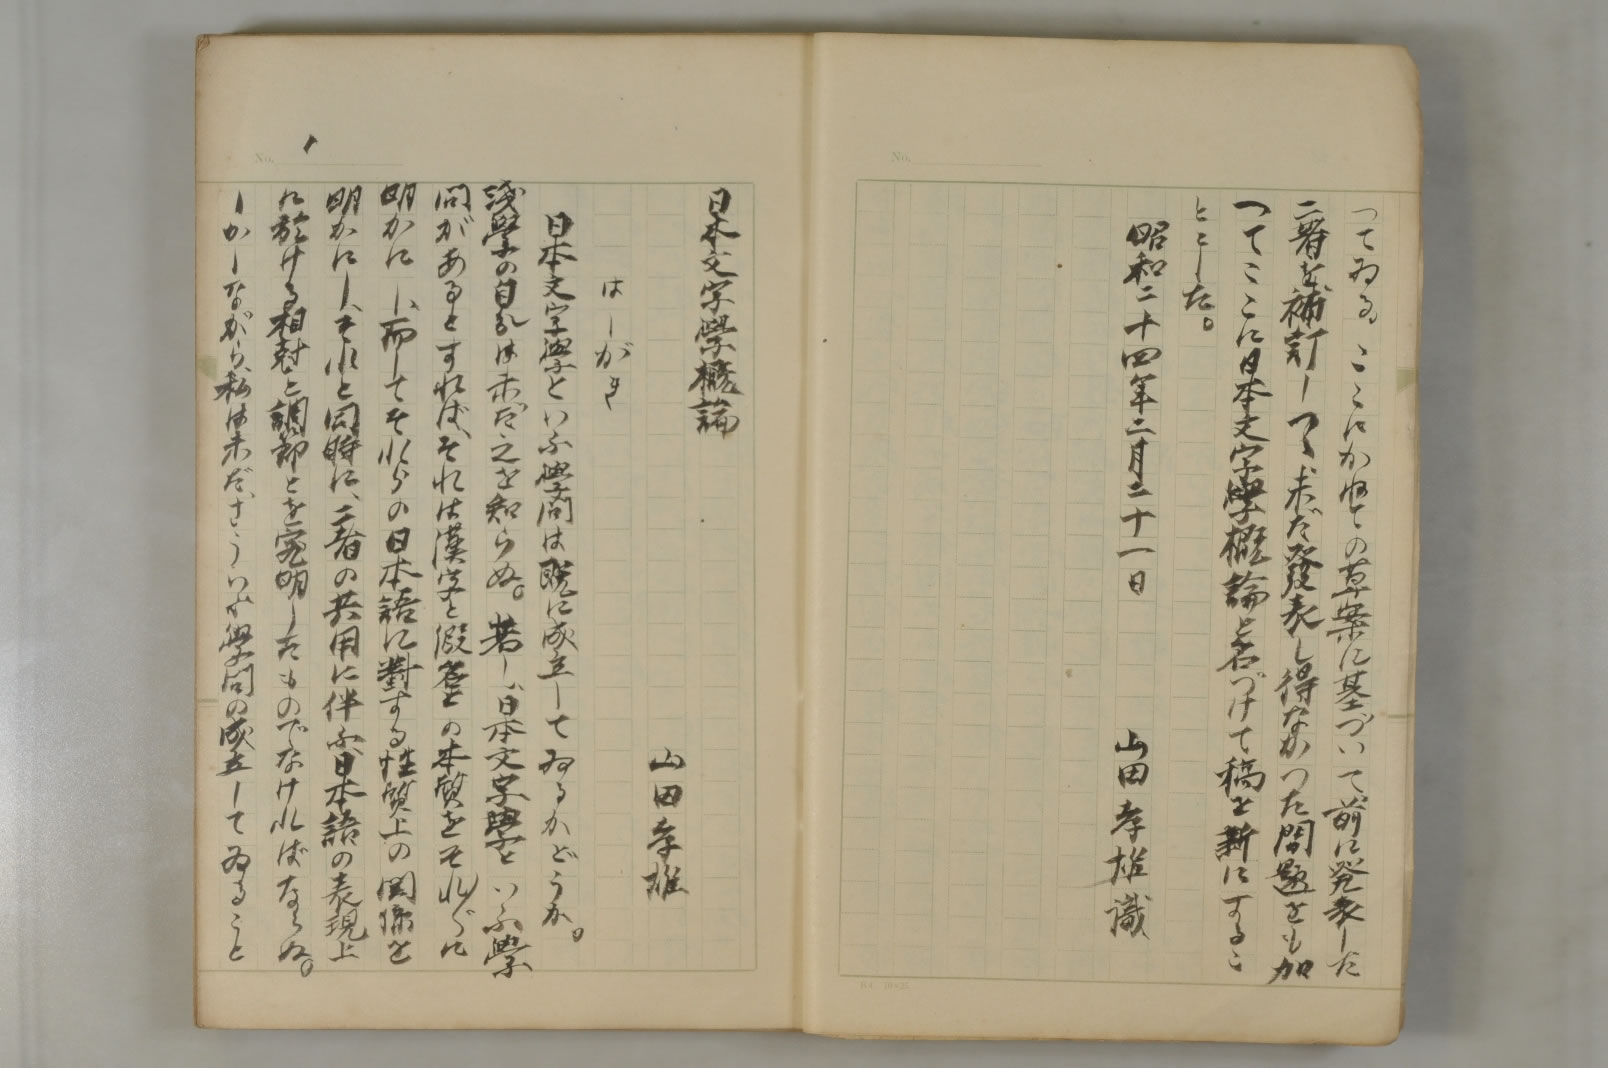 No.
つてゐる。ここにかねての草案に基づいて、前に発表した
二著を補訂しつゝ未だ發表し得なかつた問題をも加
へてここに日本文字學概論と名づけて稿を新にするこ
ととした。
昭和二十四年二月二十一日
山田孝雄識
No.
日本文字學概論
山田孝雄
はしがき
日本文字學といふ學問は既に成立してゐるかどうか。
淺學の自分は未だ之を知らぬ。若し、日本文字學といふ學
問があるとすれば、それは漢字と假名との本質をそれ〴〵に
明かにし、而してそれらの日本語に對する性質上の関係を
明かにし、それと同時に、二者の共用に伴ふ、日本語の表現上
に於ける相對と調節とを究明したものでなければならぬ。
しかしながら、私は未だ、さういふ學問の成立してゐること